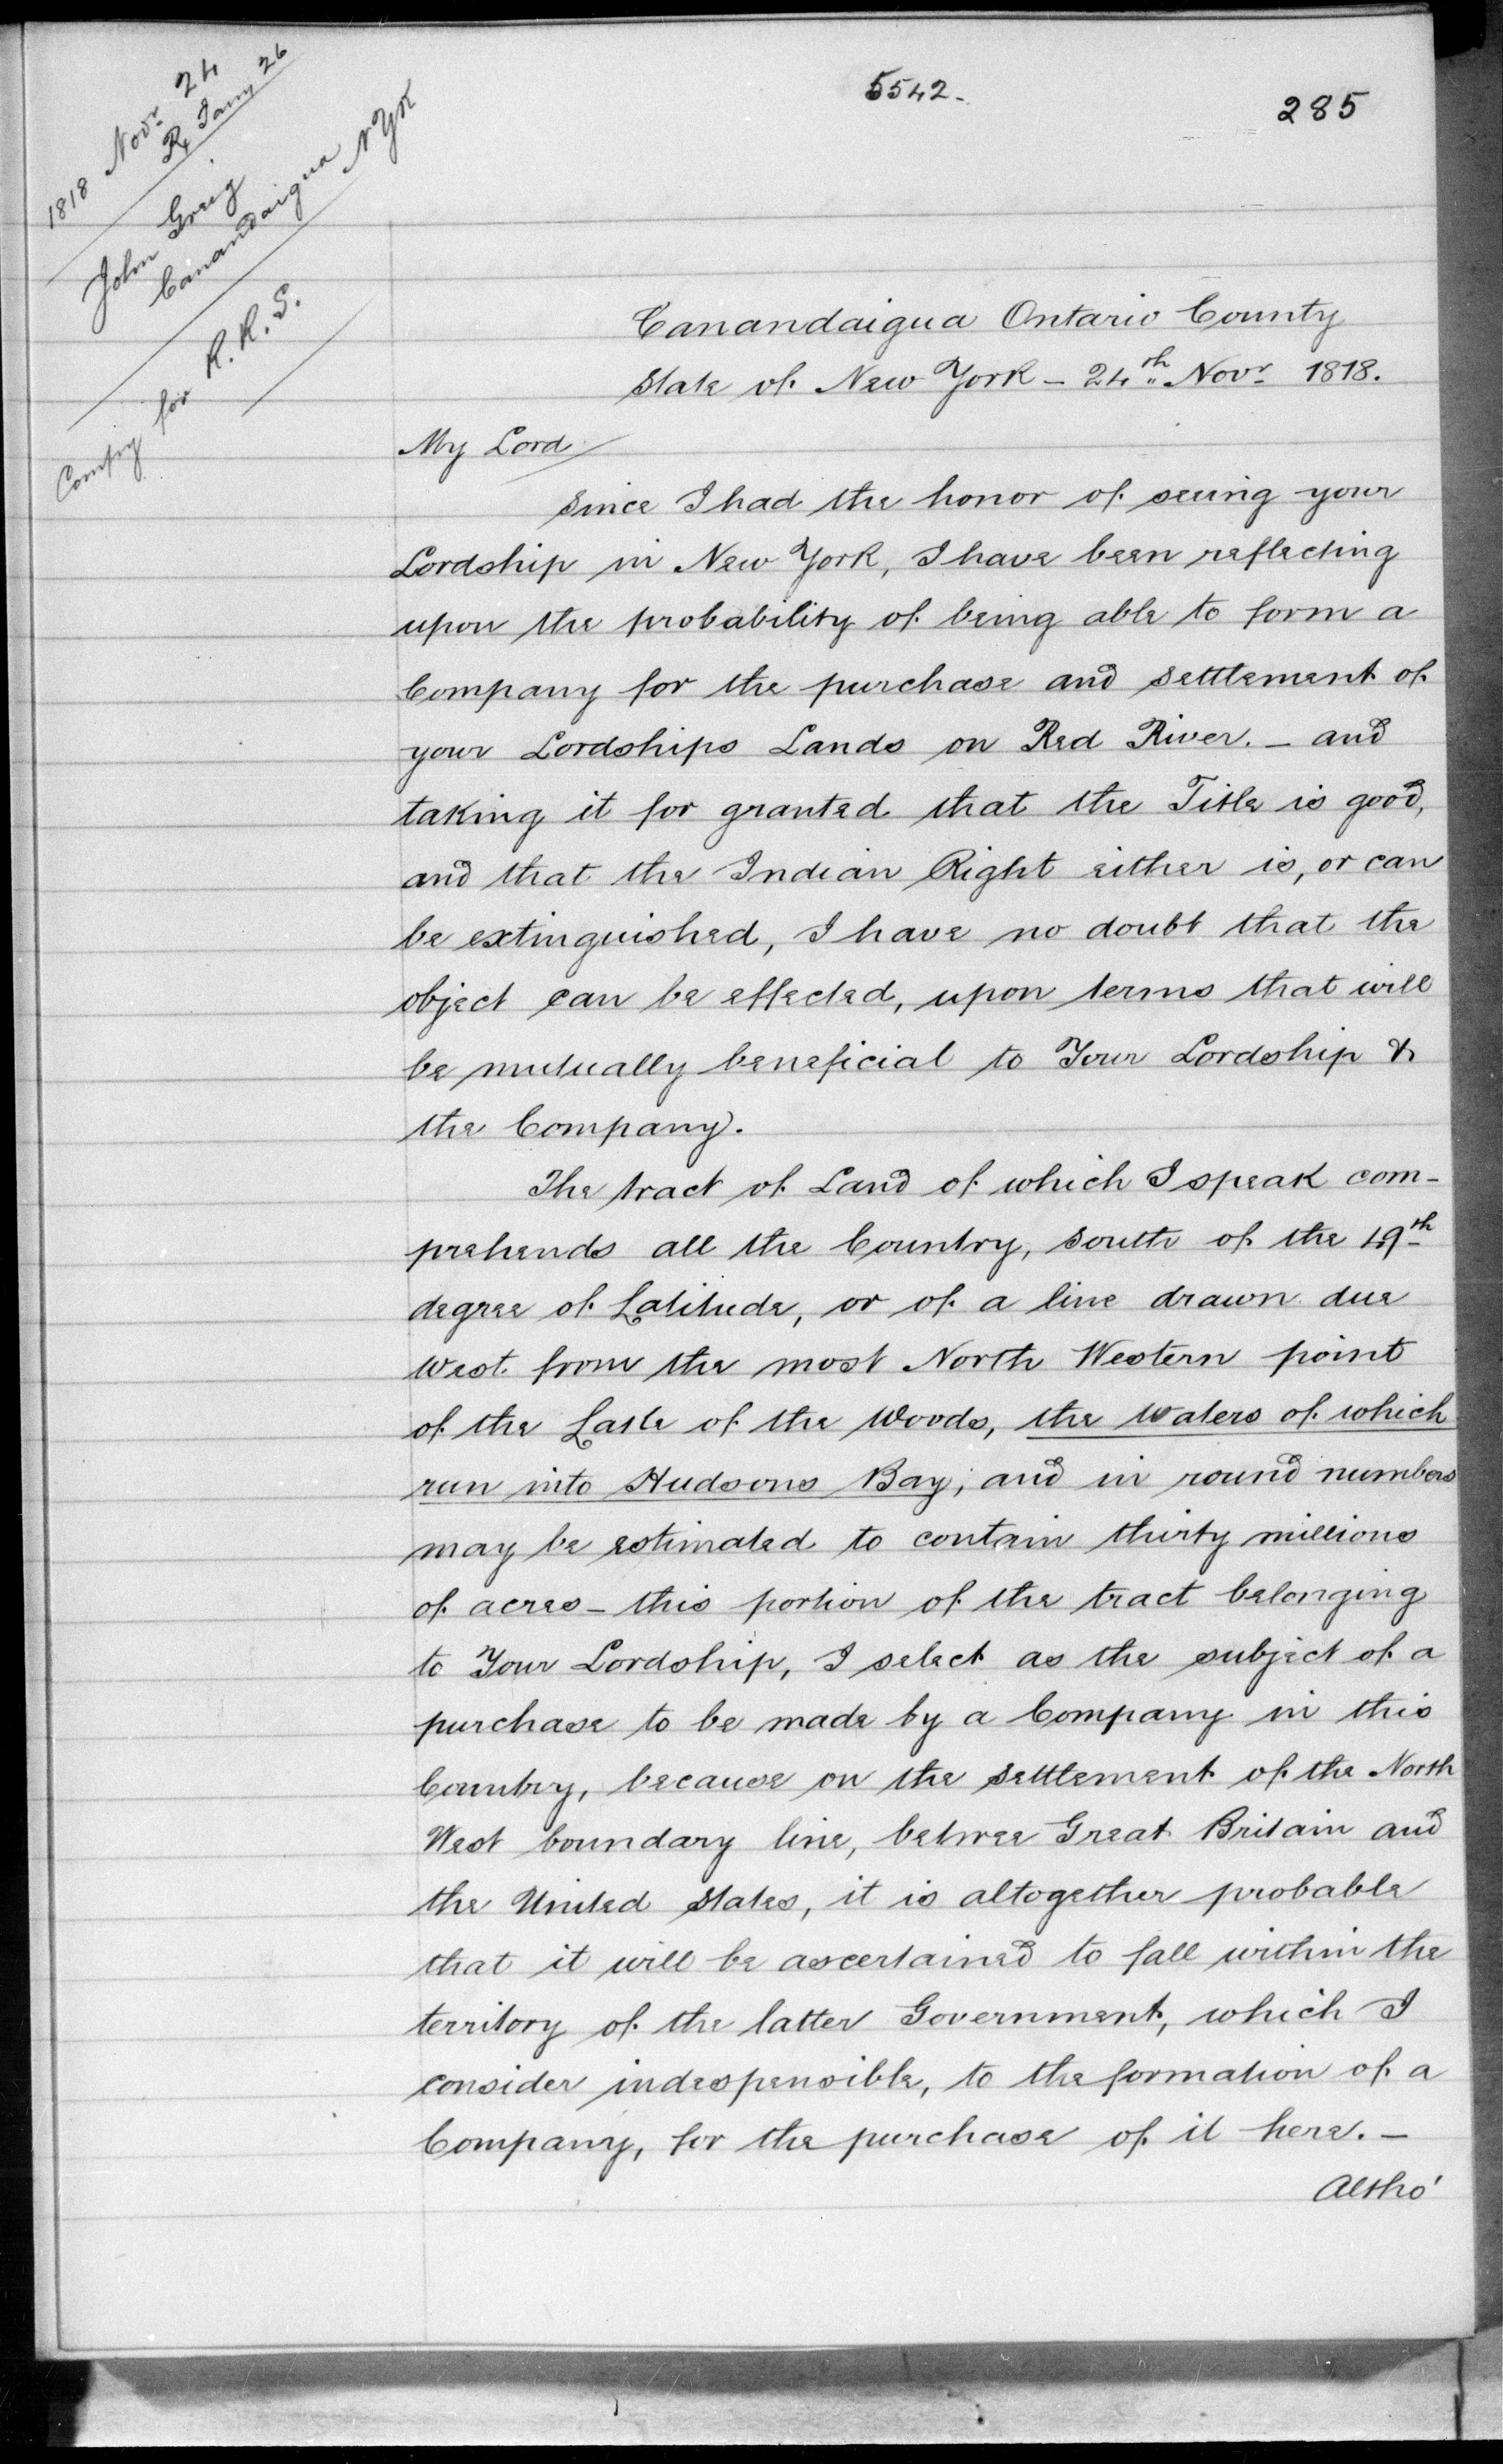 5542-
285
1818 Novr 24
R Jany 26
John Greig
Canandaigua N Yk
Compy for R.R.S.
Canandaigua Ontario County
State of New York - 24th Novr 1818.
My Lord
Since I had the honor of seeing your
Lordship in New York, I have been reflecting
upon the probability of being able to form a
Company for the purchase and settlement of
your Lordships Lands on Red River. - and
taking it for granted that the Title is good,
and that the Indian Right either is, or can
be extinguished, I have no doubt that the
object can be effected, upon terms that will
be mutually beneficial to Your Lordship &
the Company.
The tract of Land of which I speak com-
prehends all the Country, South of the 49th
degree of Latitude, or of a line drawn due
West from the most North Western point
of the Lake of the Woods, the waters of which
run into Hudsons Bay; and in round numbers
may be estimated to contain thirty millions
of acres - this portion of the tract belonging
to Your Lordship, I select as the subject of a
purchase to be made by a Company in this
Country, because on the settlement of the North
West boundary line, betwee Great Britain and
the United States, it is altogether probable
that it will be ascertained to fall within the
territory of the latter Government, which I
consider indespensible, to the formation of a
Company, for the purchase of it here. -
Altho'